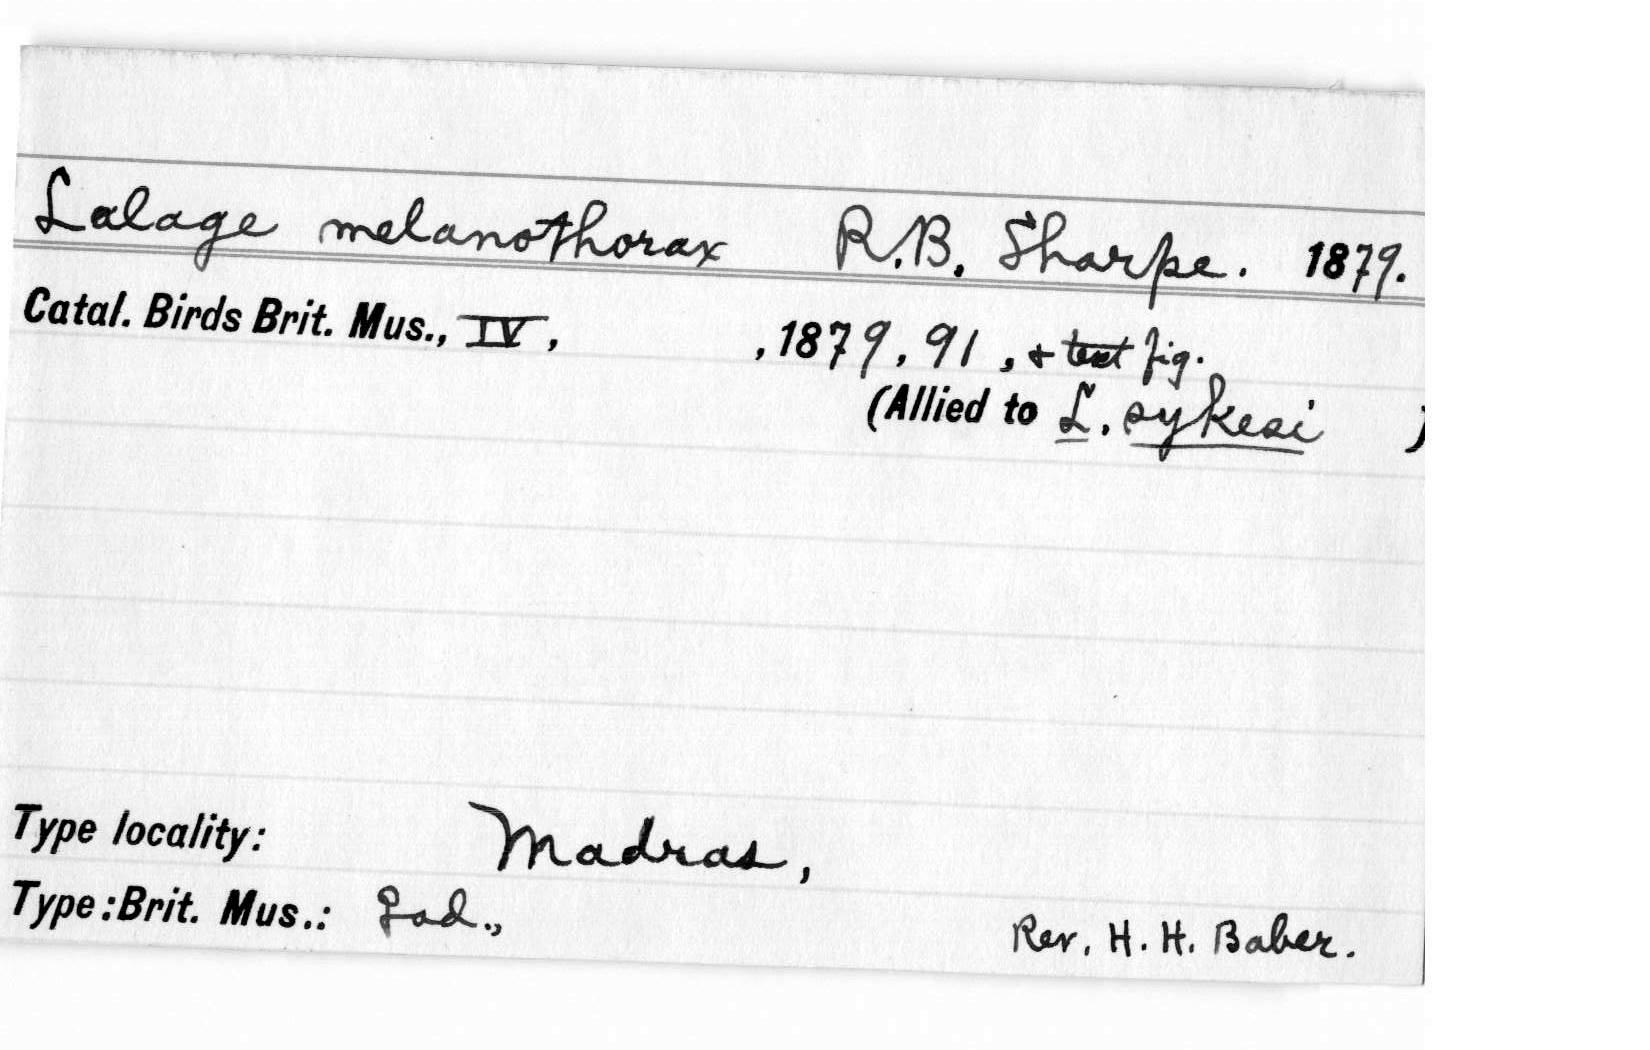 Lalage melanothorax R.B. Sharpe. 1879.
Catal. Birds Brit. Mus., IV, , 1879, 91, + text fig.
(Allied to L. sykesi )
Type locality: Madras,
Type: Brit. Mus.: ♀ ad., Rev. H. H. Baber.